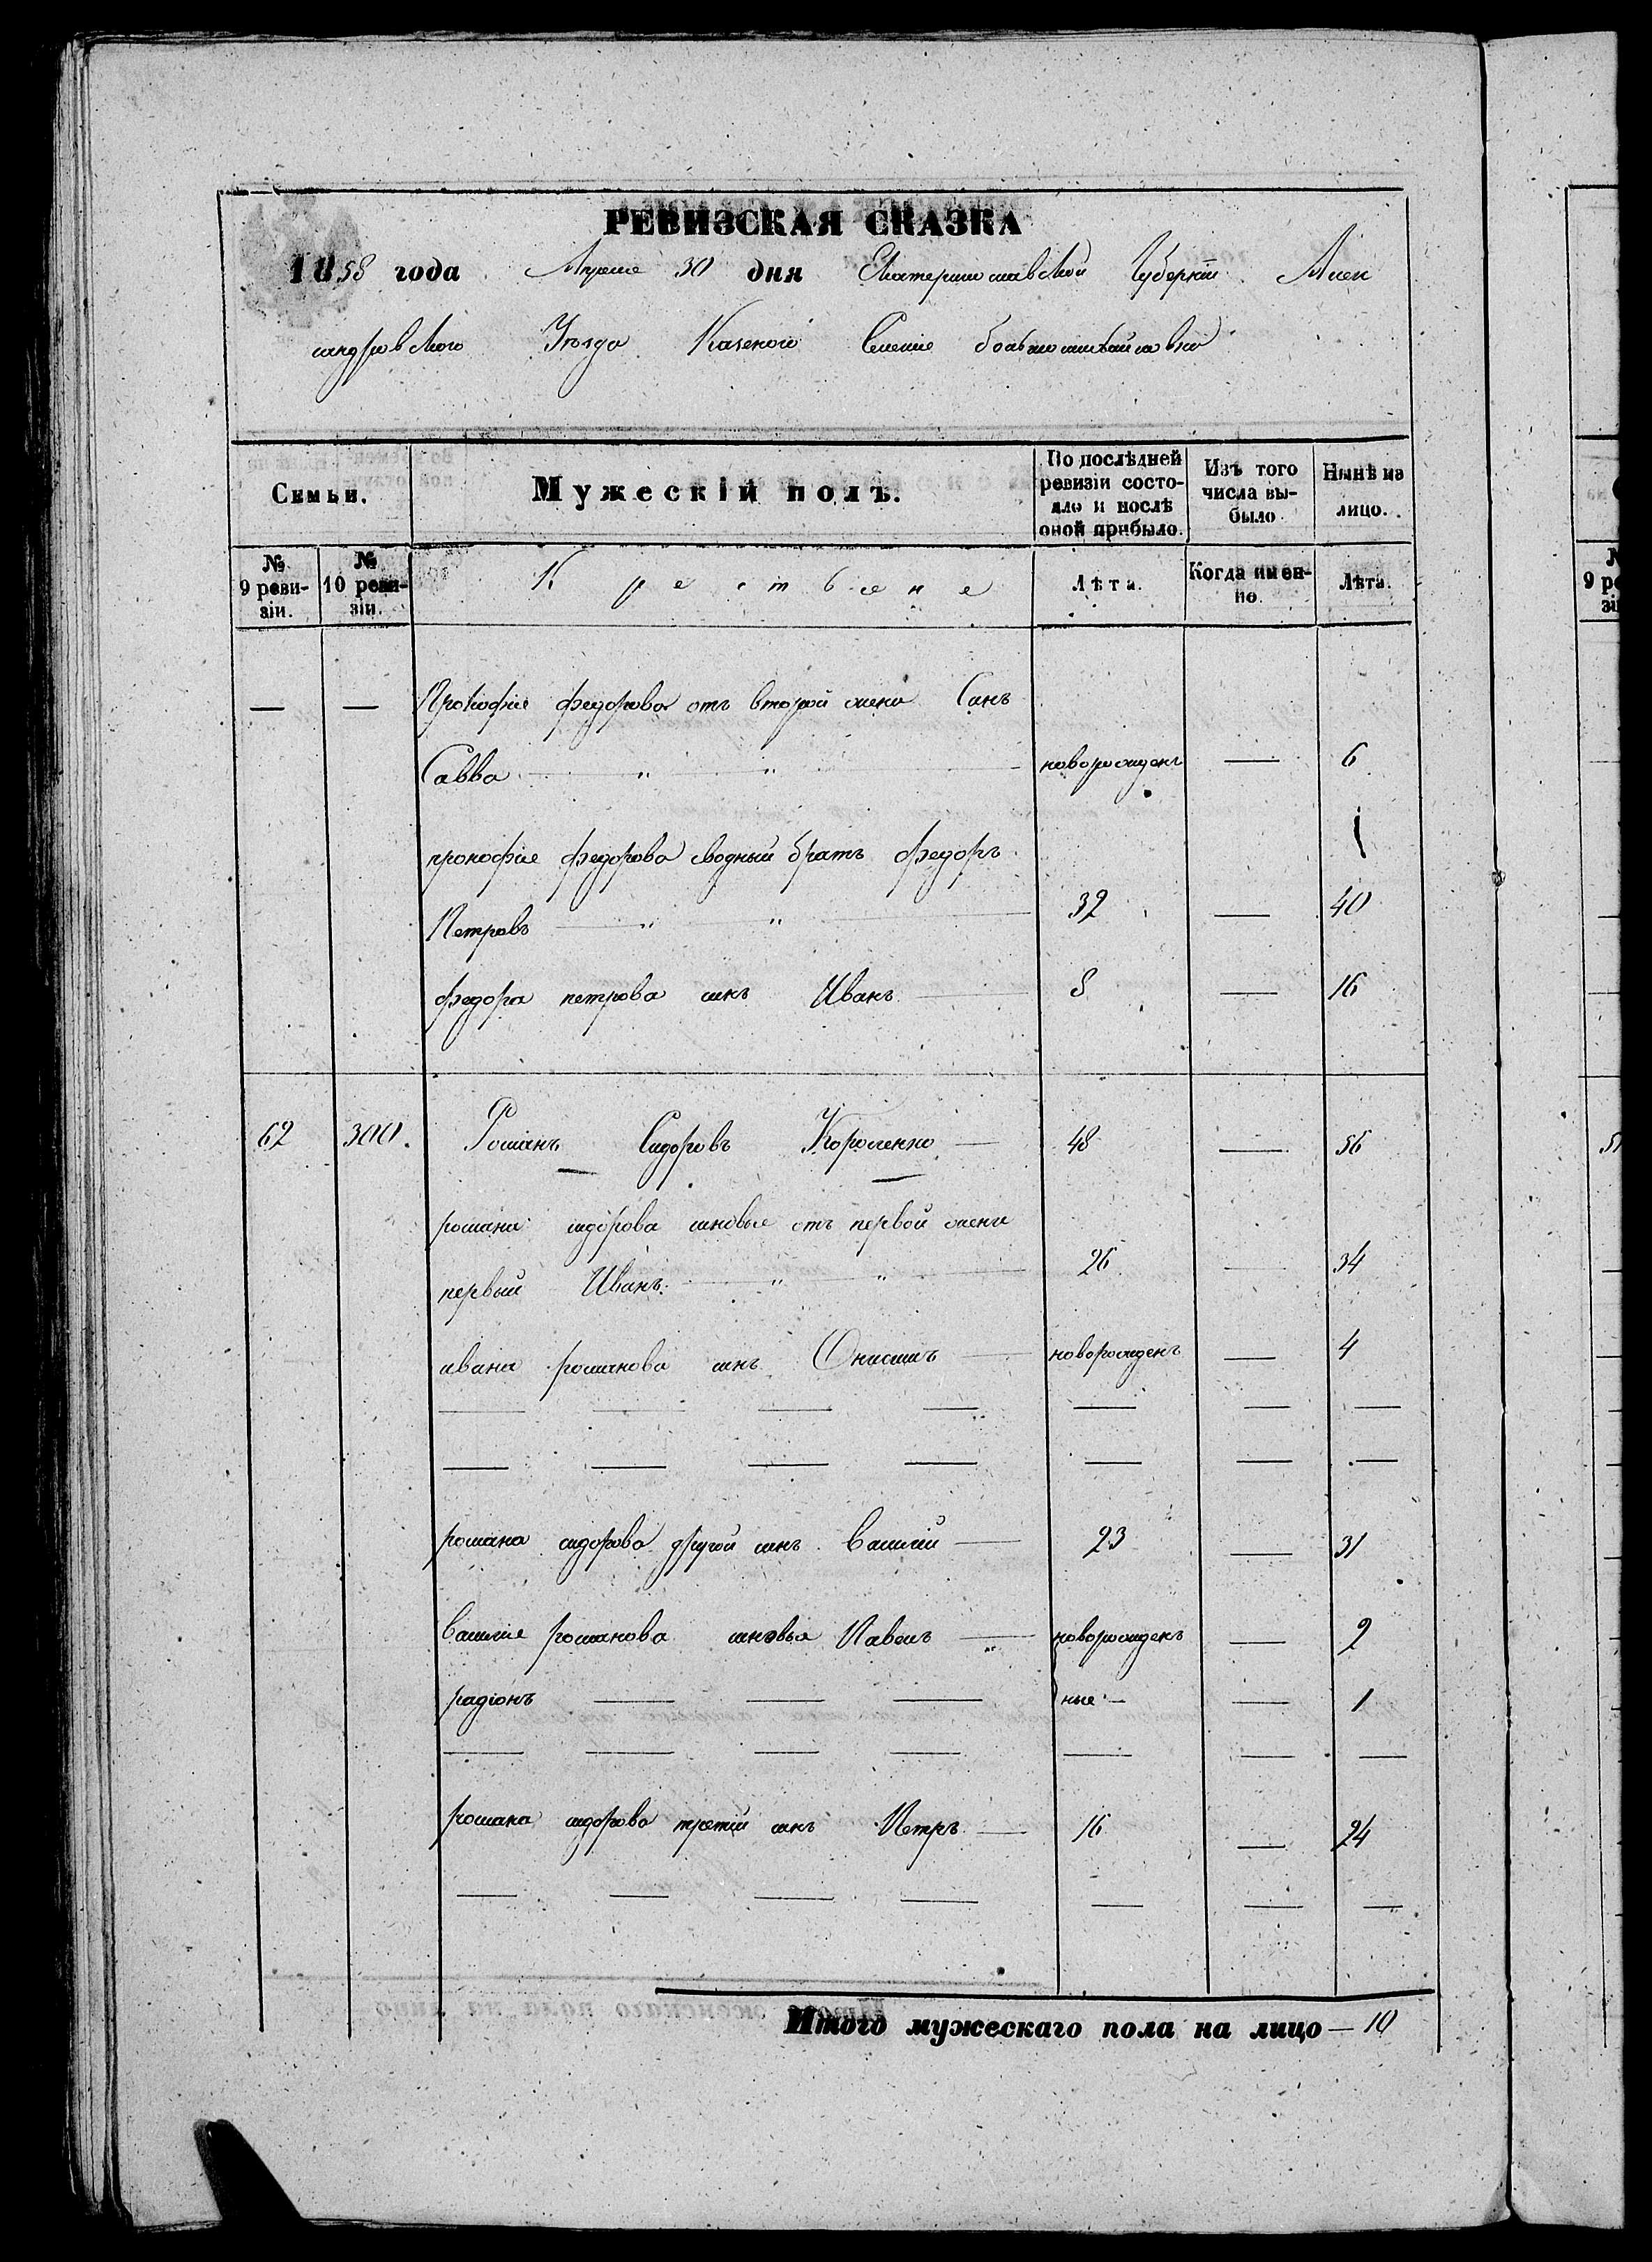 РЕВИЗСКАЯ СКАЗКА
1858 года Апреля 30 дня Екатеринославской Губернiи Алек
сандровского Уѣзда Казеного Селение
Семьи. Мужескiй полъ. По послѣдней ревизiи состояло и послѣ оной прибыло. Изъ того числа выбыло. Нынѣ на лицо.
№ 9 ревизiи. № 10 ревизiи. Крестьяне Лѣта. Когда именно. Лѣта.
— — Прокофiя федорова отъ второй жени Сынъ
Савва — " — " — новорожденъ — 6
прокофiя федорова сводный братъ федоръ
Петровъ — " — " — 32 — 40
федора петрова сынъ Иванъ — 8 — 16
62 300. Романъ Сидоровъ — 48 — 56
романа сидорова сыновья отъ первой жени
первый Иванъ — " — " — 26 — 34
ивана романова сынъ Онисимъ — новорожденъ — 4
романа сидорова другой сынъ Василiй — 23 — 31
Василiя романова сыновья Павелъ — новорожден — 2
радiонъ — — — ные — — 1
романа сидорова третiй сынъ Петръ — 16 — 24
Итого мужескаго пола на лицо — 10
№
9 ре
зi